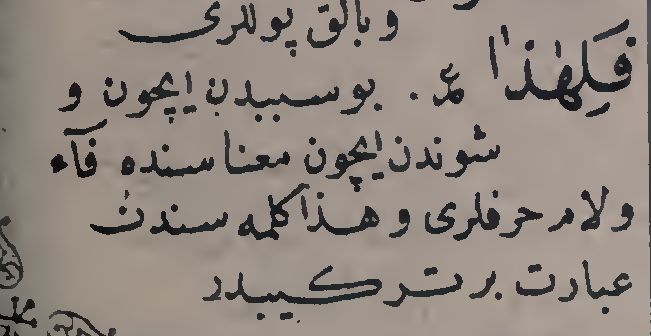 وبالق پوللری
فَلِهٰذا عر. بو سببدن ایچون و
شوندن ایچون معناسنده فآء
ولام حرفلری و هذا كلمه سندن
عبارت بر تركیبدر